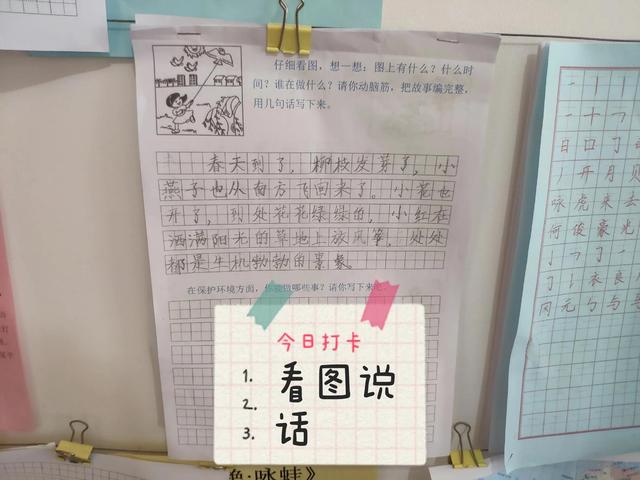 仔细看图，想一想：图上有什么？什么时
间？谁在做什么？请你动脑筋，把故事编完整，
用几句话写下来。
春天到了，柳枝发芽了，小
燕子也从南方飞回来了。小花也
开了，到处花花绿绿的，小红在
洒满阳光的草地上放风筝，处处
都是生机勃勃的景象。
在保护环境方面，你能做哪些事？请你写下来吧。
今日打卡
1. 看图说
2.
3. 话
一十
日口了
丨开月见
咏虎来去
何俊豪光
衣良
网元勺与
·咏蛙》